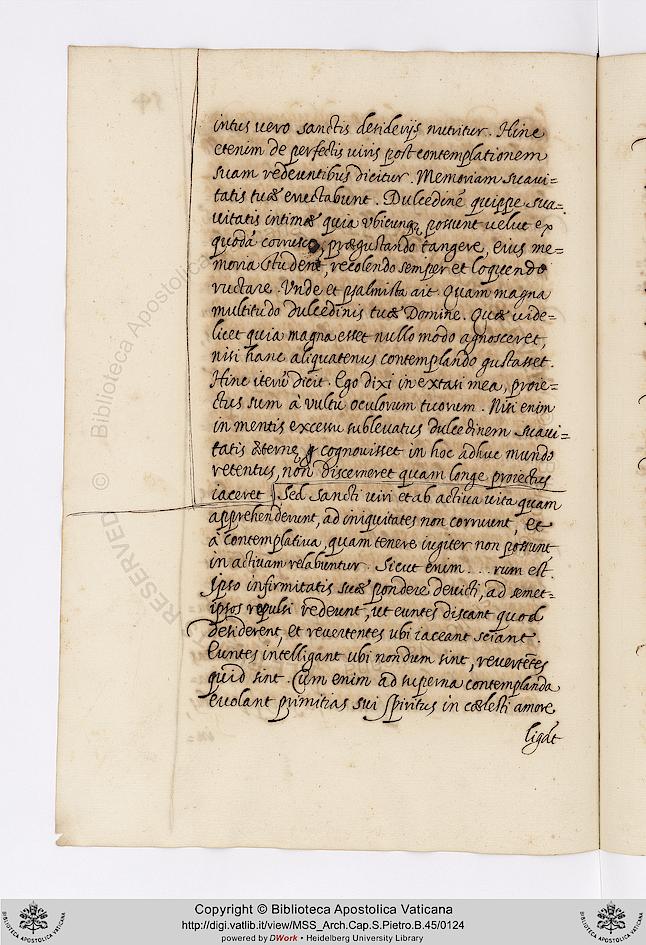 intus vero sanctis desiderijs nutritur. Hinc
etenim de perfectis viris post contemplationem
suam redeuntibus dicitur. Memoriam suavi-
tatis tuæ eructabunt. Dulcedinē quippe sua-
vitatis intimæ quia vbicunq; possunt velut ex
quodā corrusco, prægustando tangere, eius me=
moria student, recolendo semper et loquendo
ructare. Vnde et psalmista ait. Quam magna
multitudo dulcedinis tuæ Domine. Quæ vide-
licet quia magna esset nullo modo agnosceret,
nisi hanc aliquatenus contemplando gustasset.
Hinc iterū dicit. Ego dixi in extasi mea, proie=
ctus sum à vultu oculorum tuorum. Nisi enim
in mentis excessu sublevatus dulcedinem suavi=
tatis æternę cognovisset in hoc adhuc mundo
retentus, non discerneret quam longe proiectus
iaceret Sed sancti viri et ab activa vita quam
apprehenderunt, ad iniquitates non corruunt, et
à contemplativa, quam tenere iugiter non possunt
in activam relabuntur. Sicut enim ... rum est.
Ipso infirmitatis suæ pondere devicti, ad semet=
ipsos repulsi redeunt, ut euntes discant quod
desiderent, et revertentes ubi iaceant sciant.
Euntes intelligant ubi nondum sint, revertētes
quid sint. Cum enim ad superna contemplanda
evolant primitias sui spiritus in cælesti amore
ligāt
RESERVED © Biblioteca Apostolica
Copyright © Biblioteca Apostolica Vaticana
http://digi.vatlib.it/view/MSS_Arch.Cap.S.Pietro.B.45/0124
powered by DWork • Heidelberg University Library